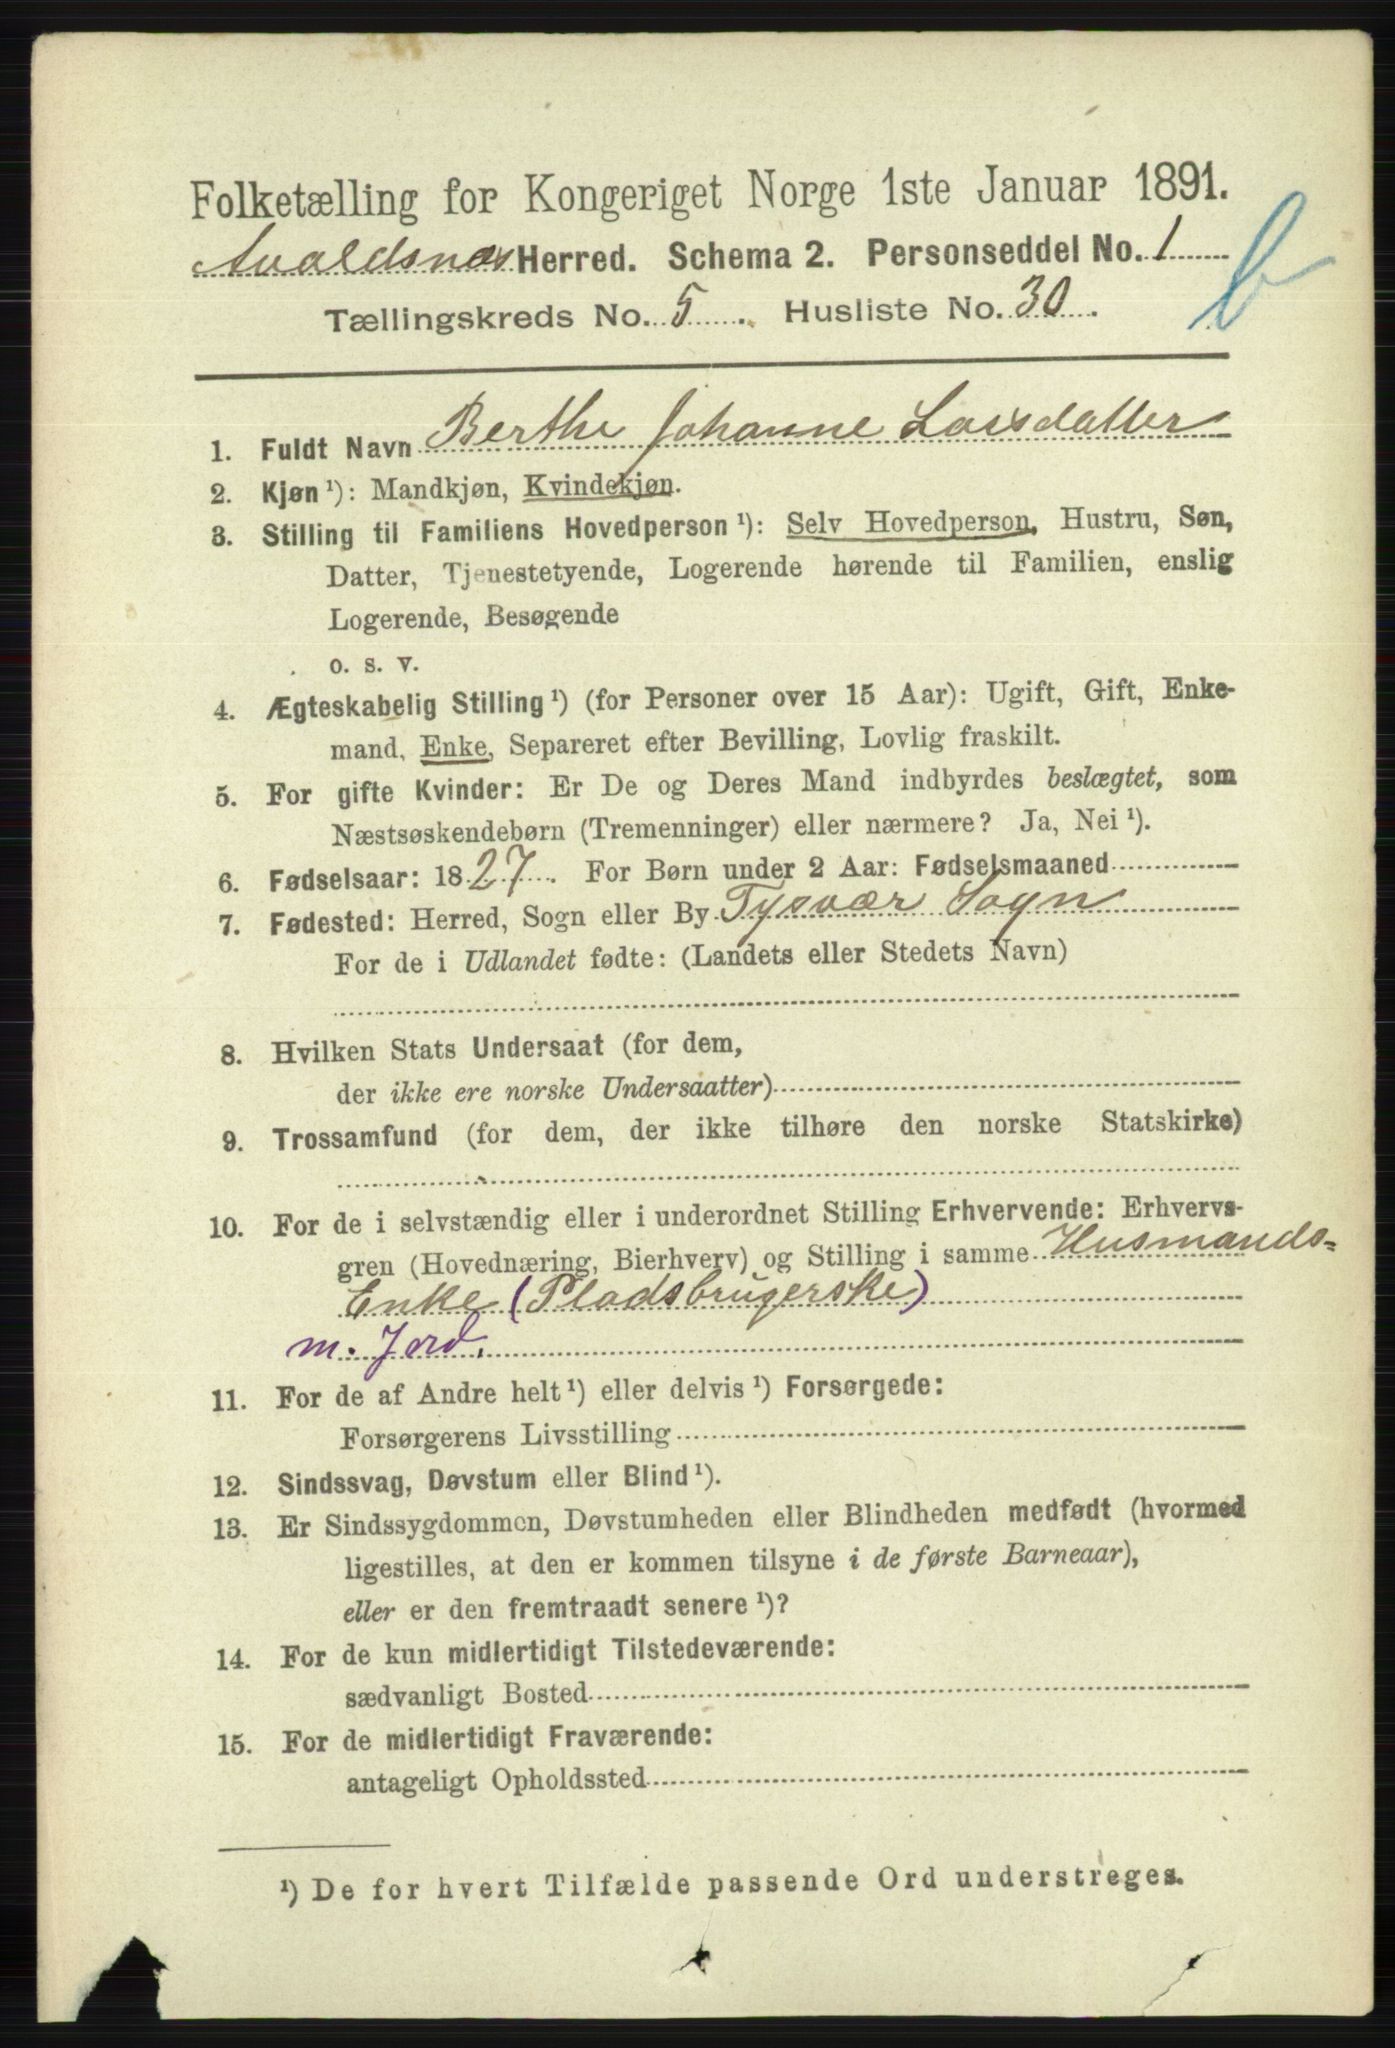 Folketælling for Kongeriget Norge 1ste Januar 1891.
Avaldsnæs Herred. Schema 2. Personseddel No. 1
b
Tællingskreds No. 5. Husliste No. 30.
1. Fuldt Navn Berthe Johanne Larsdatter
2. Kjøn ¹): Mandkjøn, Kvindekjøn.
3. Stilling til Familiens Hovedperson ¹): Selv Hovedperson, Hustru, Søn,
Datter, Tjenestetyende, Logerende hørende til Familien, enslig
Logerende, Besøgende
o. s. v.
4. Ægteskabelig Stilling ¹) (for Personer over 15 Aar): Ugift, Gift, Enke-
mand, Enke, Separeret efter Bevilling, Lovlig fraskilt.
5. For gifte Kvinder: Er De og Deres Mand indbyrdes beslægtet, som
Næstsøskendebørn (Tremenninger) eller nærmere? Ja, Nei ¹).
6. Fødselsaar: 1827. For Børn under 2 Aar: Fødselsmaaned
7. Fødested: Herred, Sogn eller By Tysvær Sogn
For de i Udlandet fødte: (Landets eller Stedets Navn)
8. Hvilken Stats Undersaat (for dem,
der ikke ere norske Undersaatter)
9. Trossamfund (for dem, der ikke tilhøre den norske Statskirke)
10. For de i selvstændig eller i underordnet Stilling Erhvervende: Erhvervs-
gren (Hovednæring, Bierhverv) og Stilling i samme Husmands=
Enke (Pladsbrugerske)
m. Jord.
11. For de af Andre helt ¹) eller delvis ¹) Forsørgede:
Forsørgerens Livsstilling
12. Sindssvag, Døvstum eller Blind ¹).
13. Er Sindssygdommen, Døvstumheden eller Blindheden medfødt (hvormed
ligestilles, at den er kommen tilsyne i de første Barneaar),
eller er den fremtraadt senere ¹)?
14. For de kun midlertidigt Tilstedeværende:
sædvanligt Bosted
15. For de midlertidigt Fraværende:
antageligt Opholdssted
¹) De for hvert Tilfælde passende Ord understreges.